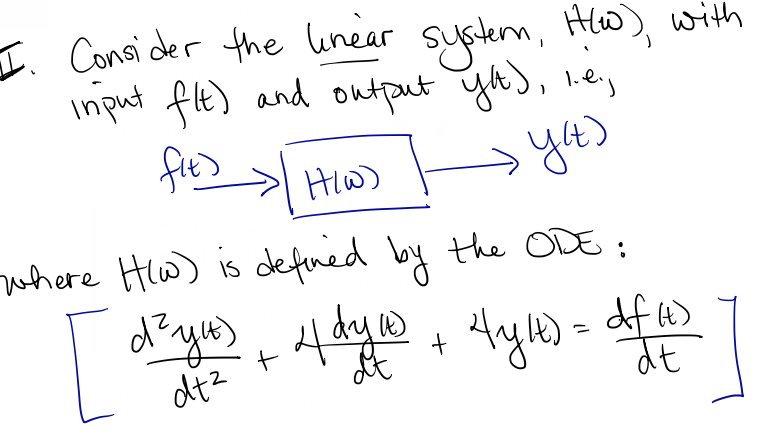 II. Consider the linear system, H(ω), with
input f(t) and output y(t), i.e.,
f(t) → H(ω) → y(t)
where H(ω) is defined by the ODE:
[ d²y(t)/dt² + 4 dy(t)/dt + 4y(t) = df(t)/dt ]